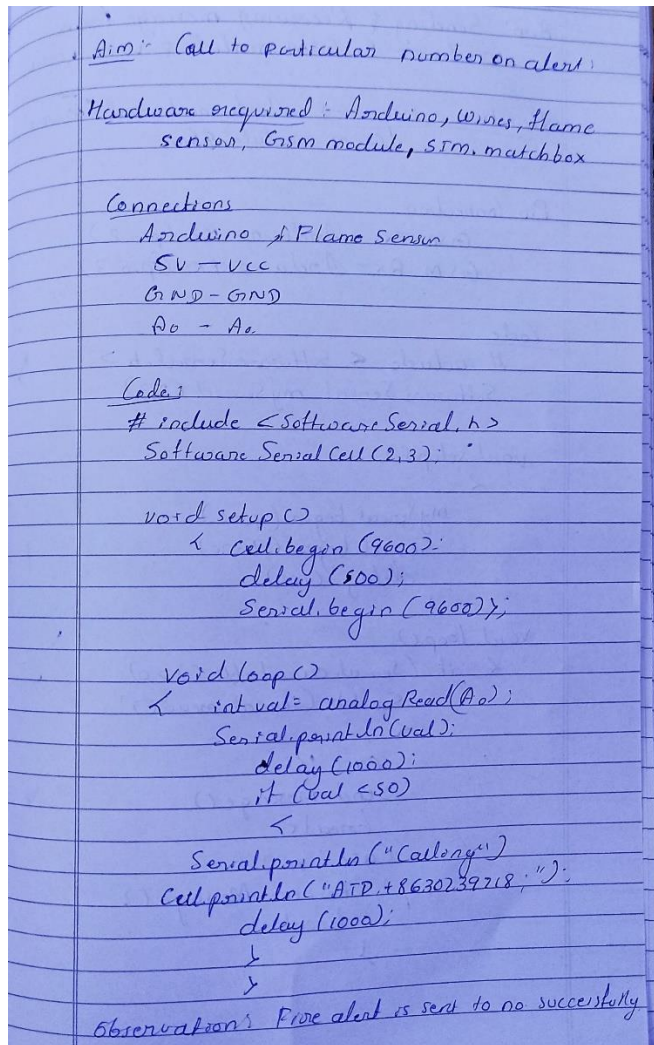 Aim:- Call to particular number on alert:
Hardware required : Arduino, wires, flame
sensor, GSM module, SIM, matchbox
Connections
Arduino Flame Sensor
5V - VCC
GND - GND
A0 - A0
Code:
# include <Software Serial.h>
Software Serial Cell (2,3);
void setup ()
{ Cell.begin (9600);
delay (500);
Serial.begin (9600)};
void loop ()
{ int val = analog Read(A0);
Serial.print ln (val);
delay (1000);
if (val <50)
{
Serial.println ("Calling")
Cell.println ("ATD,+8630239218;");
delay (1000);
}
}
Observation: Fire alert is sent to no successfully